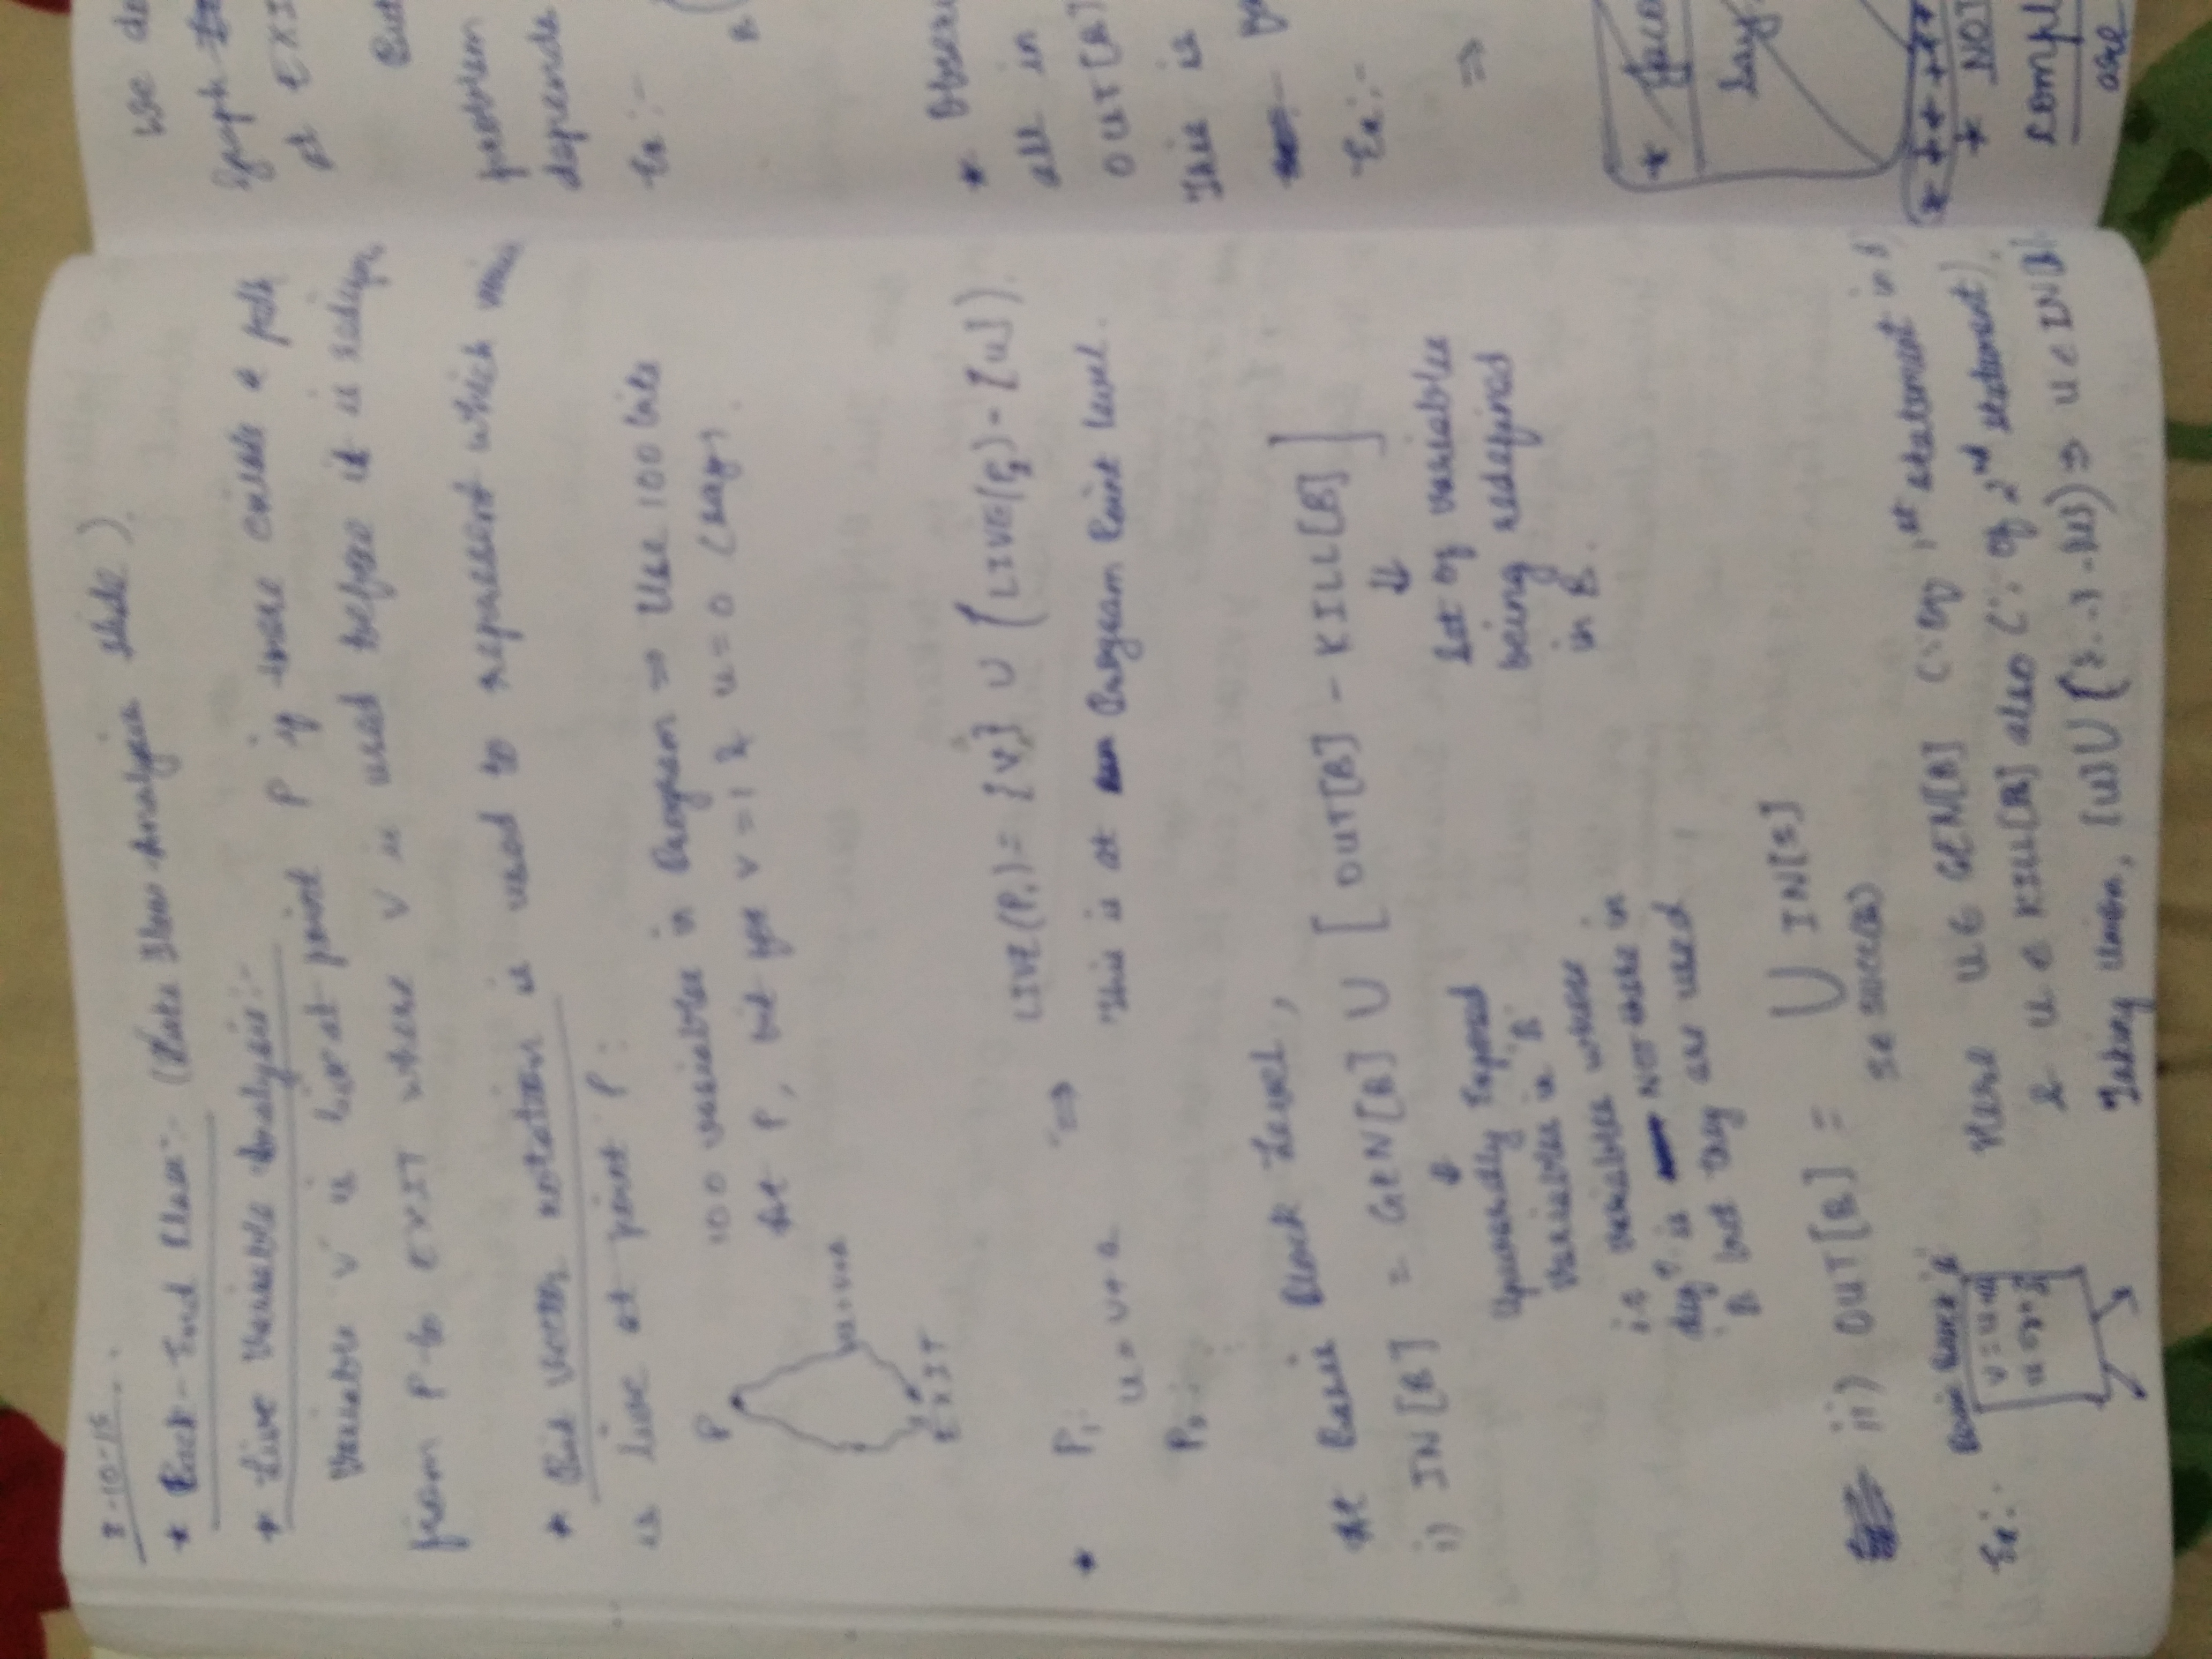 8-10-15
* Back-End Class:- (Data Flow Analysis Slide).
* Live Variable Analysis:-
Variable V is live at point P if there exists a path
from P to EXIT where V is used before it is
* Bit Vector notation is used to represent which
is live at point P:
100 variables in Program ⇒ Use 100 bits
At P, bit for V = 1 & u = 0 (say).
P
EXIT
LIVE(P₁) = {v} ∪ (LIVE(P₂) - {u}).
* P₁: ⇒
u = v + a
This is at Program Point level.
P₂:
At Basic Block Level,
i) IN[B] = GEN[B] ∪ [OUT[B] - KILL[B]]
⇓ ⇓
Upwardly Exposed
Variables in 'B'
ie variables whose
defⁿ is NOT there in
'B' but they are used
Set of variables
being redefined
in B.
ii) OUT[B] = ∪ IN[S]
S∈ SUCC(B)
Ex:- Basic Block 'B'
Here u ∈ GEN[B] (∵ of 1st statement in
& u ∈ KILL[B] also (∵ of 2nd statement).
Taking Union, {u} ∪ ({...} - {u}) ⇒ u ∈ IN[B]
We
Graph
at
But
problem
depends
Ex:-
*
all in
OUT[B]
This is
Ex:-
⇒
*
Say
* NOT
are